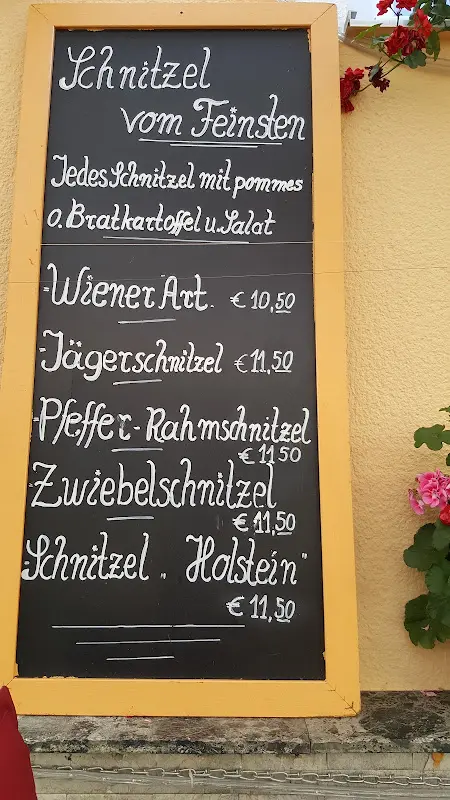 Schnitzel
vom Feinsten
Jedes Schnitzel mit pommes
o. Bratkartoffel u. Salat
-Wiener Art. € 10,50
-Jägerschnitzel € 11,50
-Pfeffer-Rahmschnitzel
€ 11 50
Zwiebelschnitzel
€ 11,50
-Schnitzel „ Holstein"
€ 11,50